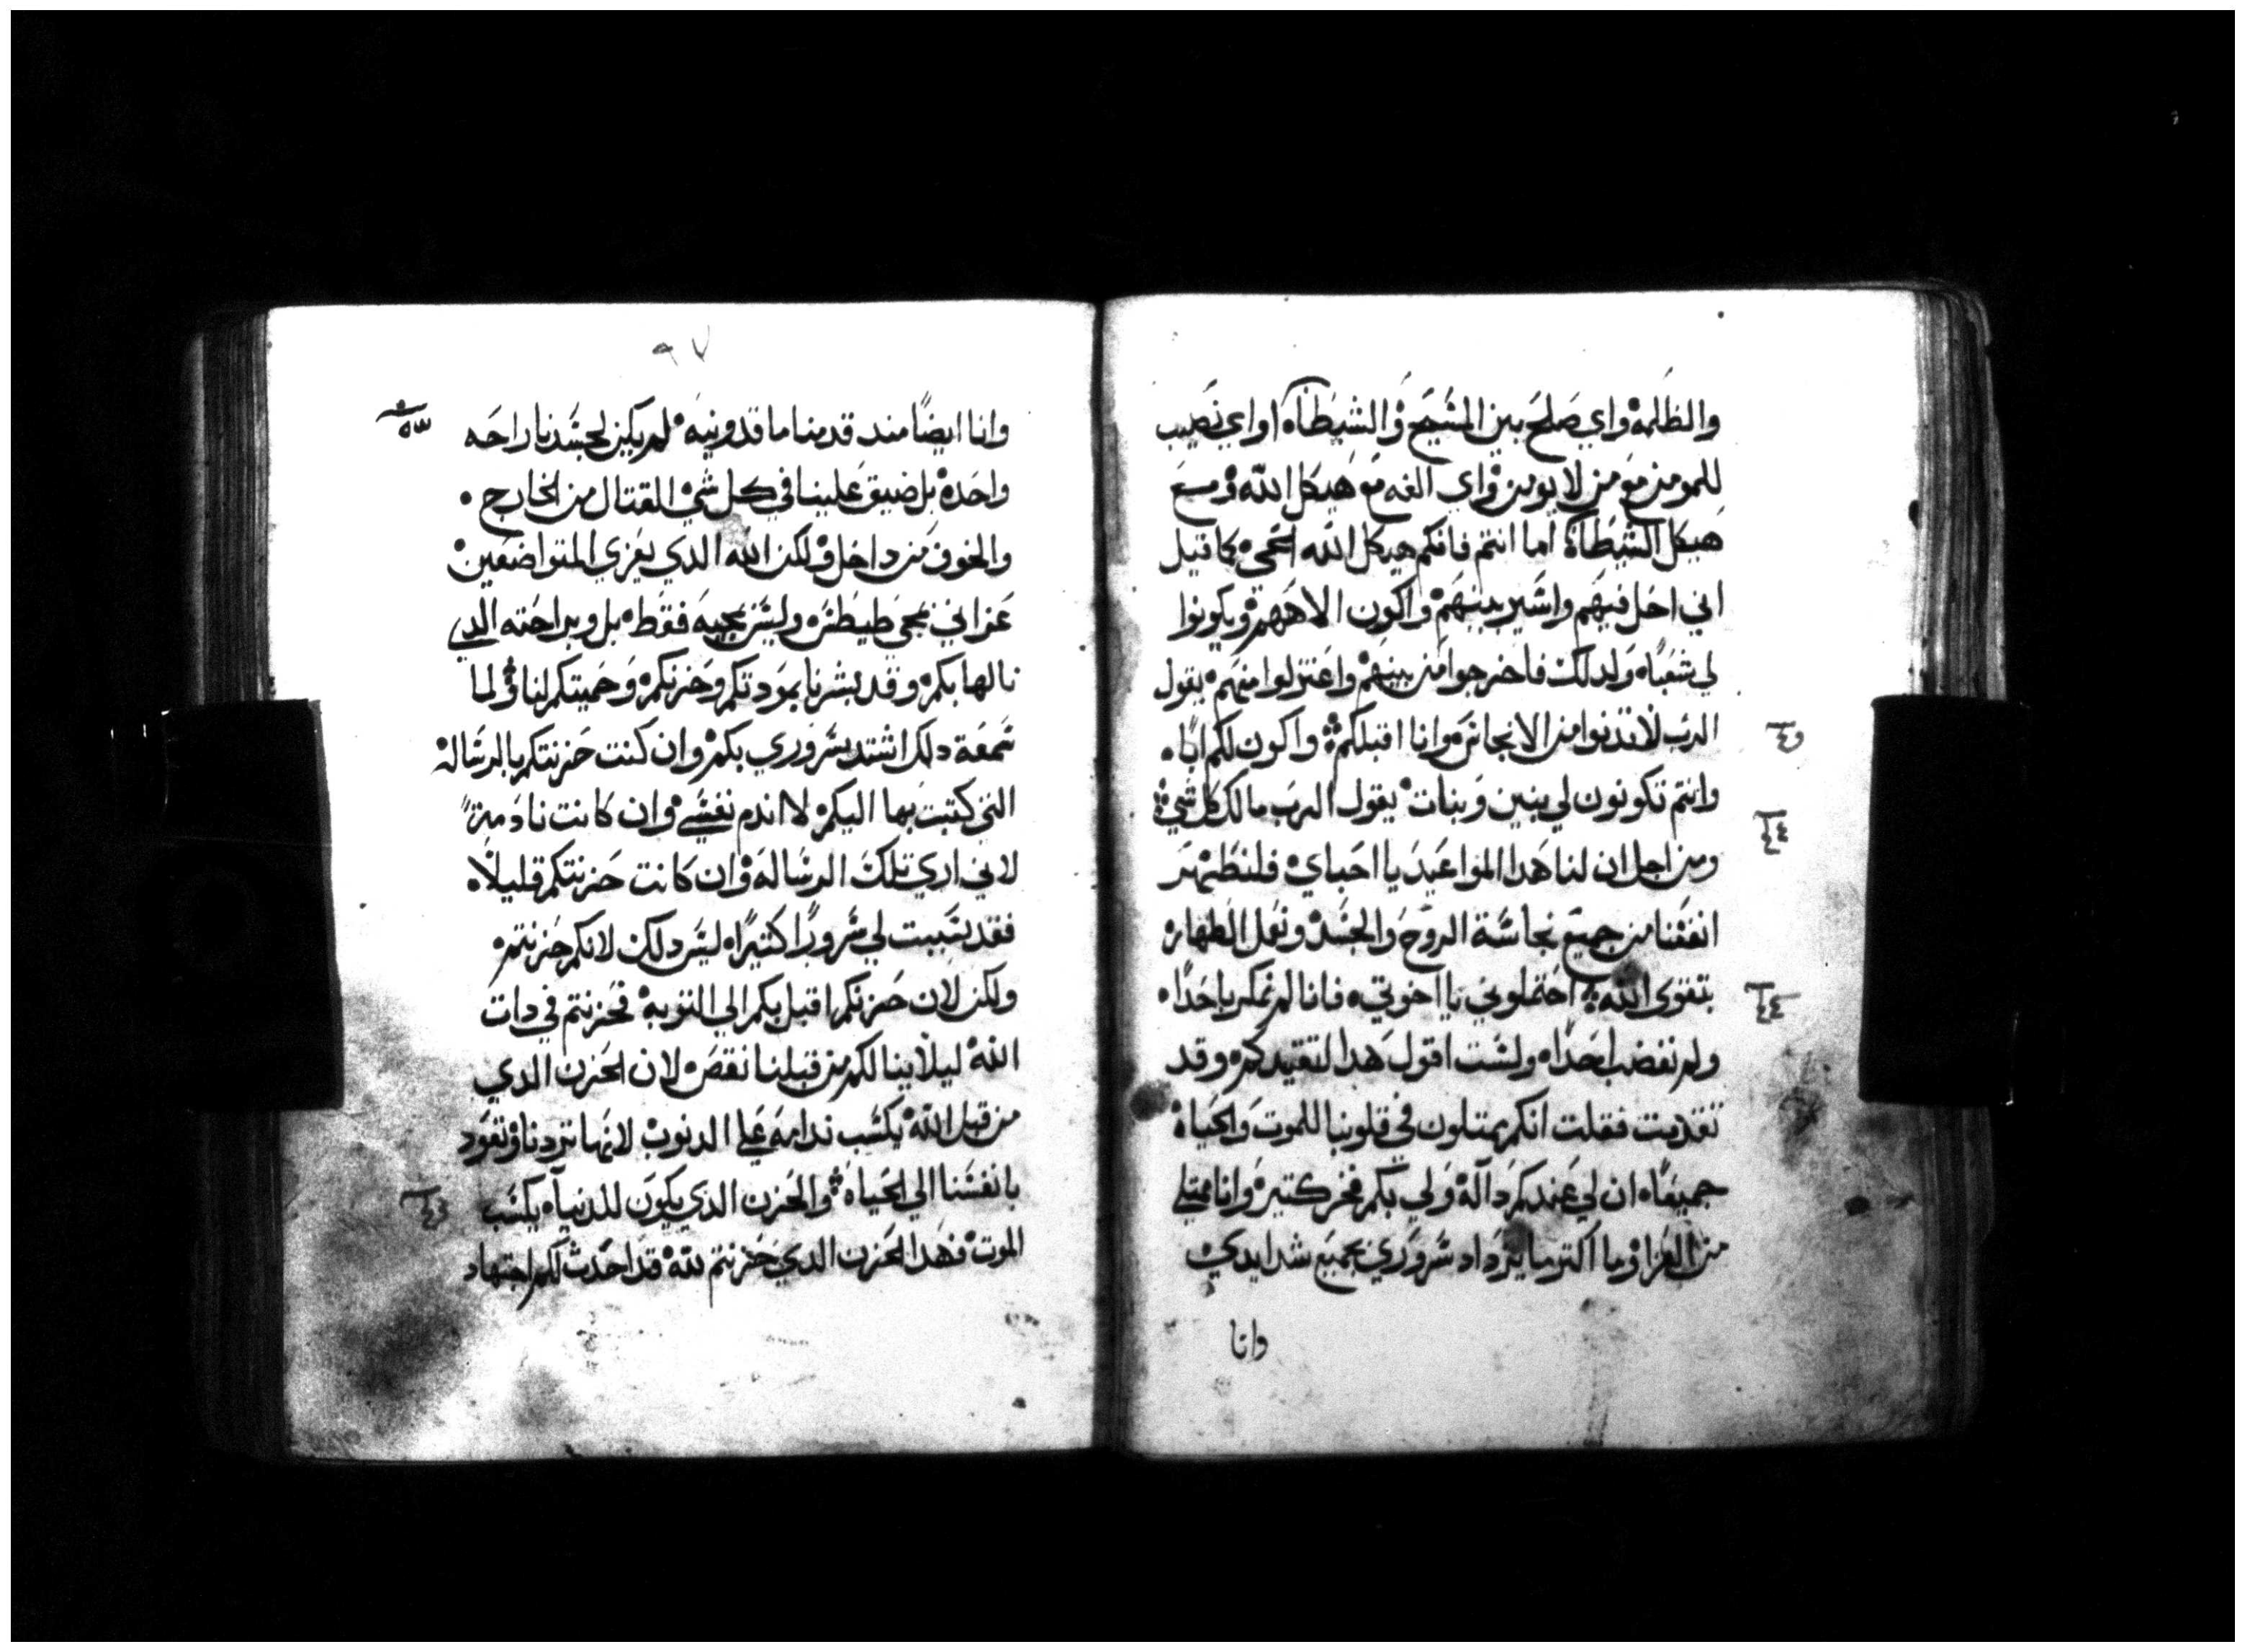 والظلمة واي صلح بين المسيح والشيطان او اي نصيب
للمومن مع من لا يومن واي الفه مع هيكل الله ومع
هيكل الشيطان اما انتم فانكم هيكل الله الحي كما قيل
اني احل فيهم واسير بينهم واكون الاههم ويكونوا
لي شعبا ولدلك فاخرجوا من بينهم واعتزلوا منهم يقول
الرب لا تدنوا من الانجاس وانا اقبلكم واكون لكم ابا
وانتم تكونون لي بنين وبنات يقول الرب مالك كل شي
ومن اجل ان لنا هدا المواعيد يا احباي فلنطهر
انفسنا من جميع نجاسة الروح والجسد ونفعل الطهاره
بتقوى الله احتملوني يا اخوتي فانا لم نمكر باحدا
ولم نغضب احدا ولست اقول هدا لتقيدكم وقد
تقدمت فقلت انكم ممتلون في قلوبنا للموت والحياة
جميعا ان لي عندكم دالة ولي بكم فخر كتير وانا ممتلي
من العزا وما اكتر ما يزداد سروري بجميع شدايدي
وانا
٩٧
وانا ايضا مند قدمنا ماقدونيه لم يكن لجسدنا راحه
واحدة بل ضيق علينا في كل شي القتال من الخارج
والخوف من داخل ولكن الله الدي يعزي المتواضعين
عزاني بمجي طيطس وليس بمجيه فقط بل وبراحته الدي
نالها بكم وقد بشرنا بمودتكم وحزنكم وحميتكم لنا ولما
سمعة دلك اشتد سروري بكم وان كنت حزنتكم بالرسالة
التي كتبت بها اليكم لا اندم نفسي وان كانت نادمة
لاني اري تلك الرسالة وان كانت حزنتكم قليلا
فقد سببت لي سرورا كتيرا ليس دلك لانكم حزنتم
ولكن لان حزنكم اقبل بكم الي التوبة فحزنتم في دات
الله ليلا ينالكم من قبلنا نقص لان الحزن الدي
من قبل الله يكسب ندامة علي الدنوب لانها تردنا وتعود
بانفسنا الي الحياة والحزن الدي يكون للدنيا يكسب
الموت فهدا الحزن الدي حزنتم لله قد احدث لكم اجتهاد